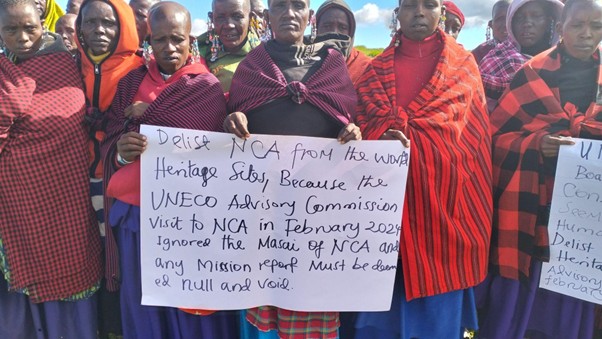 Delist NCA FROM the Worl
Heritage Sites, Because the
UNECO Advisory Commission
Visit to NCA in February 2024
Ignored the Masai of NCA and
any Mission report Must be deem
ed null and void.
UN
Boa
Con
Seem
Human
Delist
Herit
Advisory
February